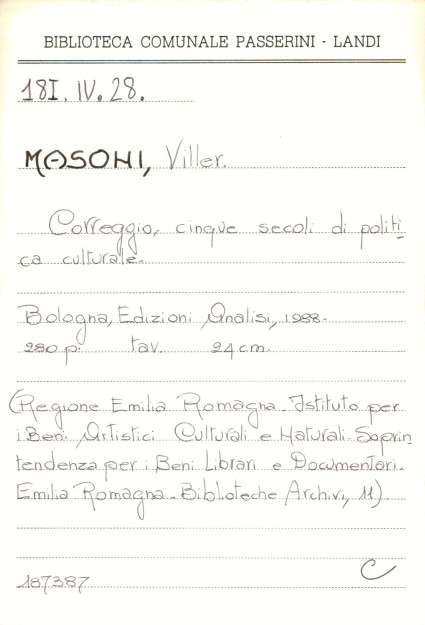 BIBLIOTECA COMUNALE PASSERINI - LANDI
18I. IV. 28.
MASONI, Viller.
Correggio, cinque secoli di politi-
ca culturale.
Bologna, Edizioni Analisi, 1988.
280 p. tav. 24 cm.
(Regione Emilia Romagna. Istituto per
i Beni Artistici Culturali e Naturali. Soprin
tendenza per i Beni Librari e Documentari.
Emilia Romagna - Biblioteche Archivi, 11)
C
187387